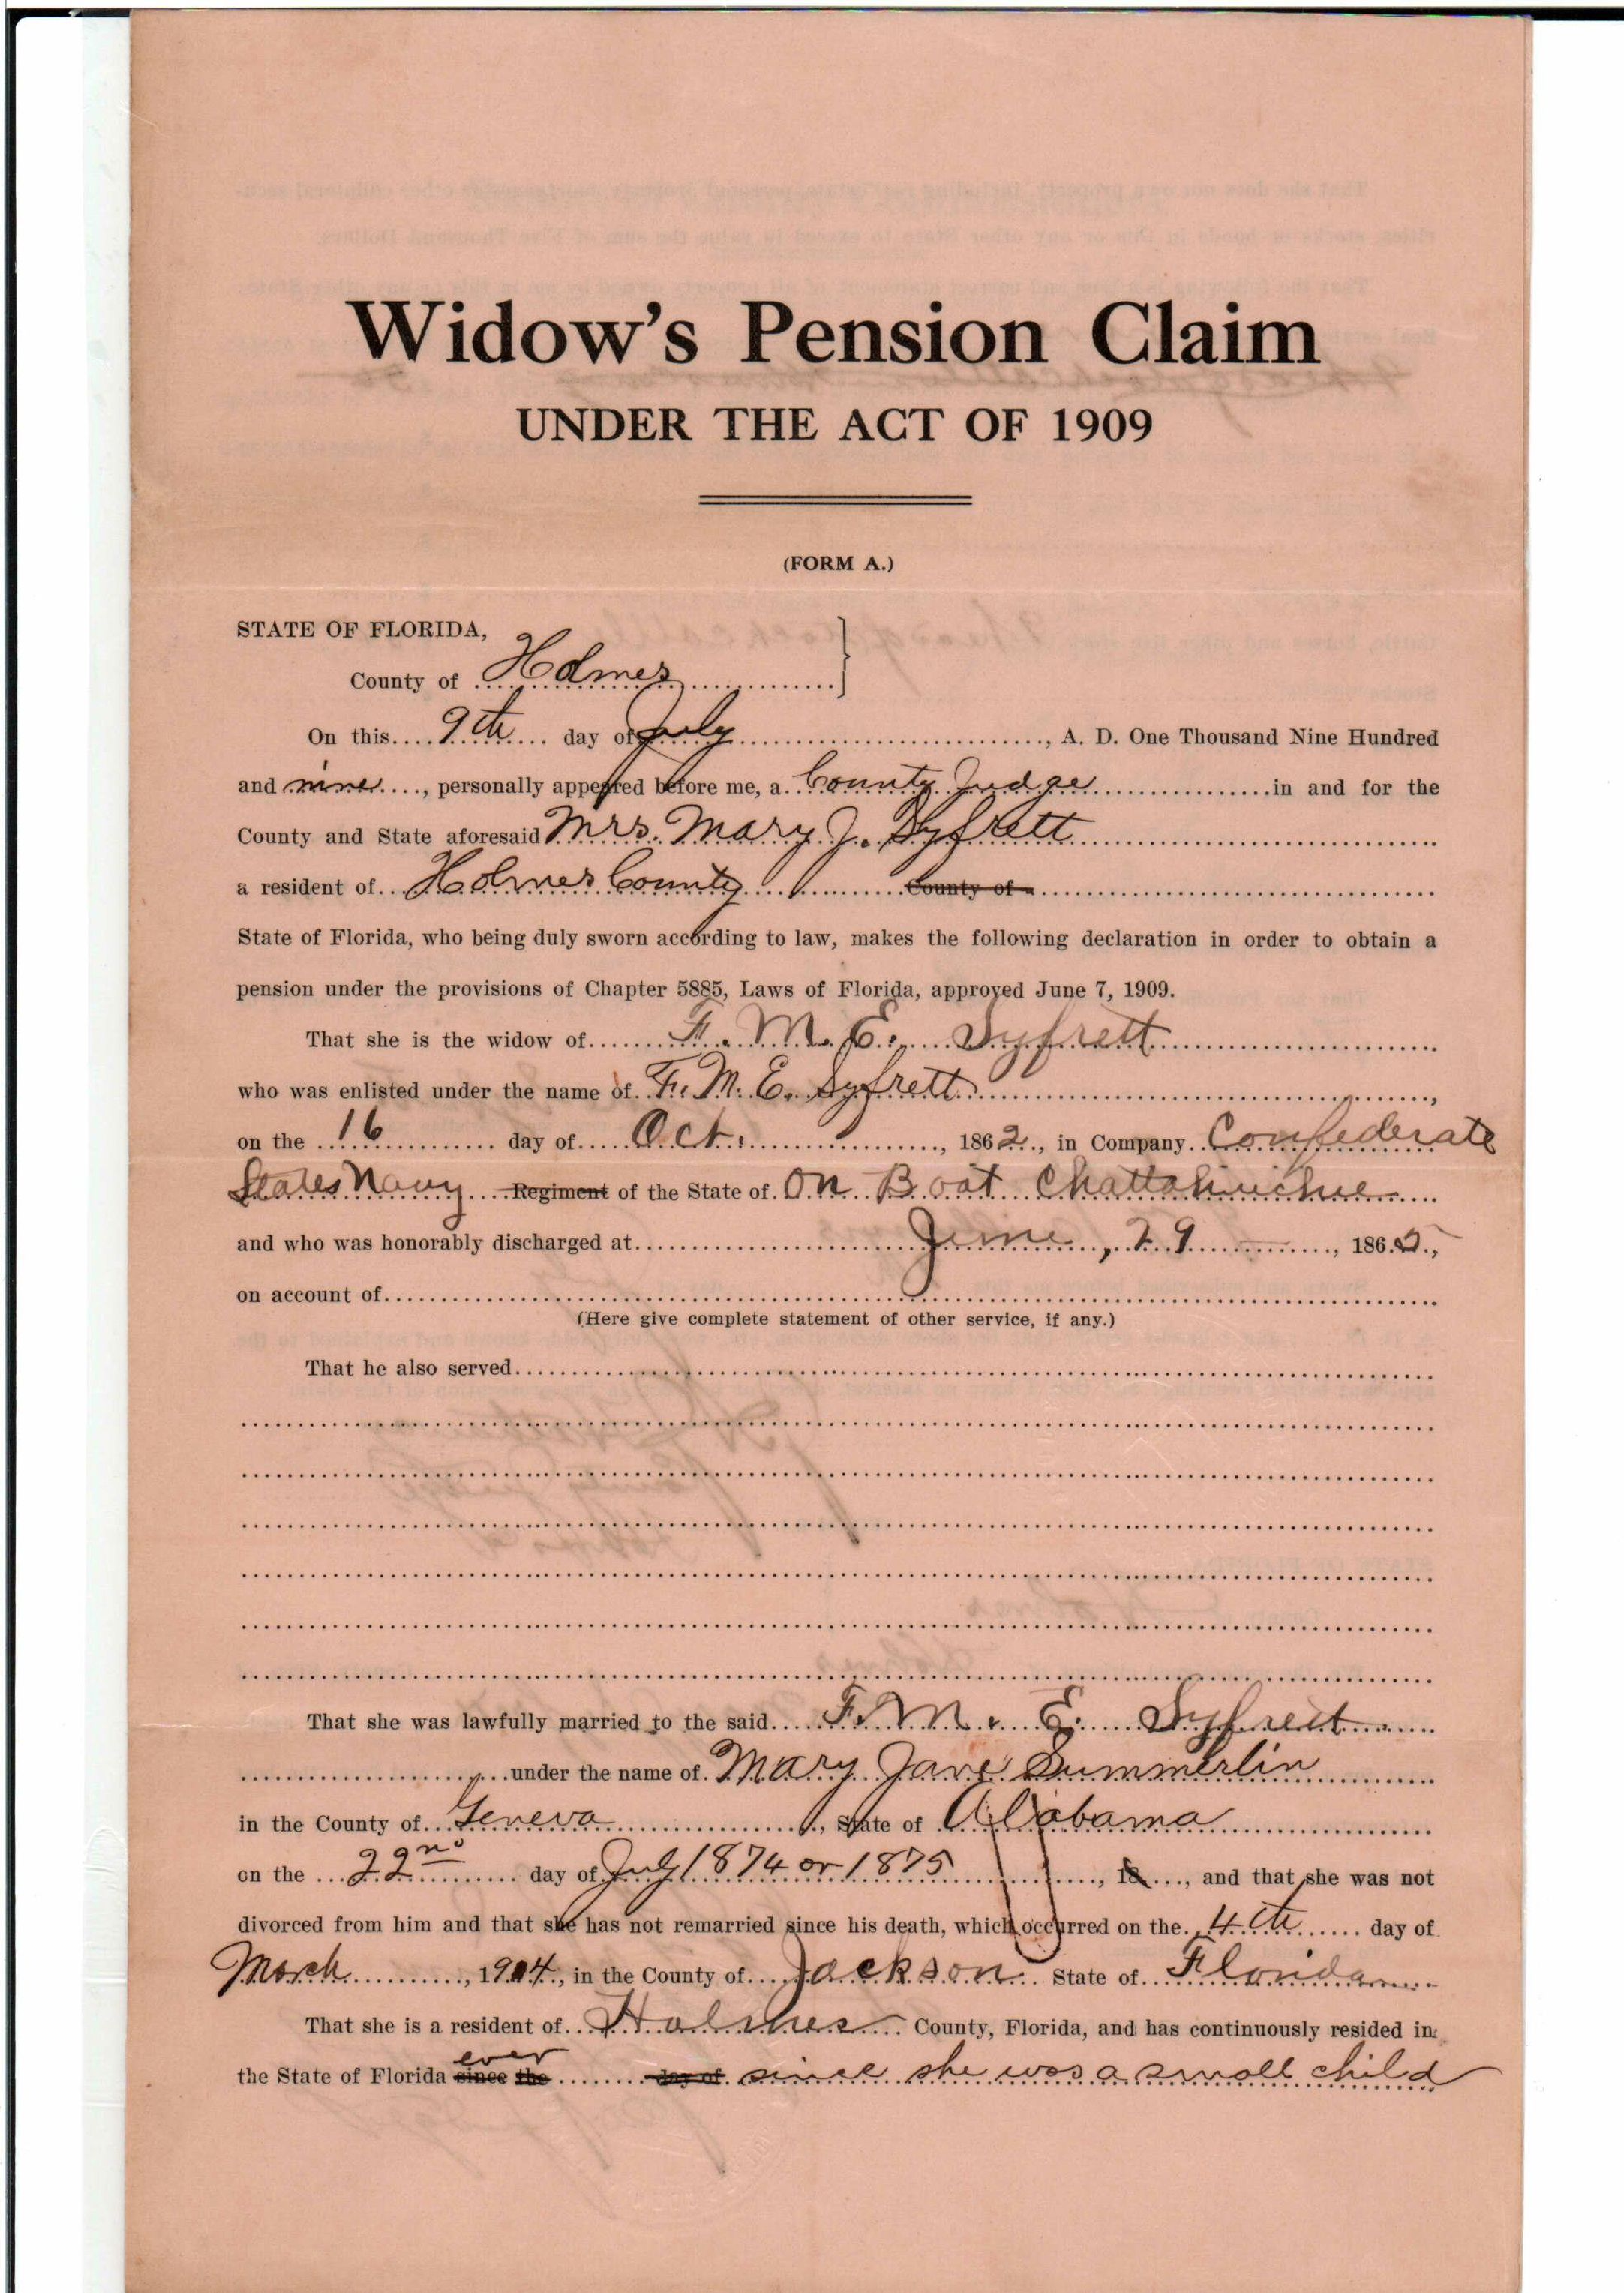 Widow's Pension Claim
UNDER THE ACT OF 1909
(FORM A.)
STATE OF FLORIDA,
County of Holmes
On this 9th day of July, A. D. One Thousand Nine Hundred
and nine, personally appeared before me, a County Judge in and for the
County and State aforesaid Mrs. Mary J. Syfrett
a resident of Holmes County County of
State of Florida, who being duly sworn according to law, makes the following declaration in order to obtain a
pension under the provisions of Chapter 5885, Laws of Florida, approved June 7, 1909.
That she is the widow of F. M. E. Syfrett
who was enlisted under the name of F. M. E. Syfrett,
on the 16 day of Oct., 1862, in Company Confederate
States Navy Regiment of the State of On Boat Chattahuichue
and who was honorably discharged at June, 29, 1865,
on account of
(Here give complete statement of other service, if any.)
That he also served
That she was lawfully married to the said F. M. E. Syfrett.
under the name of Mary Jane Summerlin
in the County of Geneva, State of Alabama
on the 22nd day of July 1874 or 1875, 18, and that she was not
divorced from him and that she has not remarried since his death, which occurred on the 4th day of
March, 1904, in the County of Jackson State of Florida
That she is a resident of Holmes County, Florida, and has continuously resided in
the State of Florida since the ever day of since she was a small child